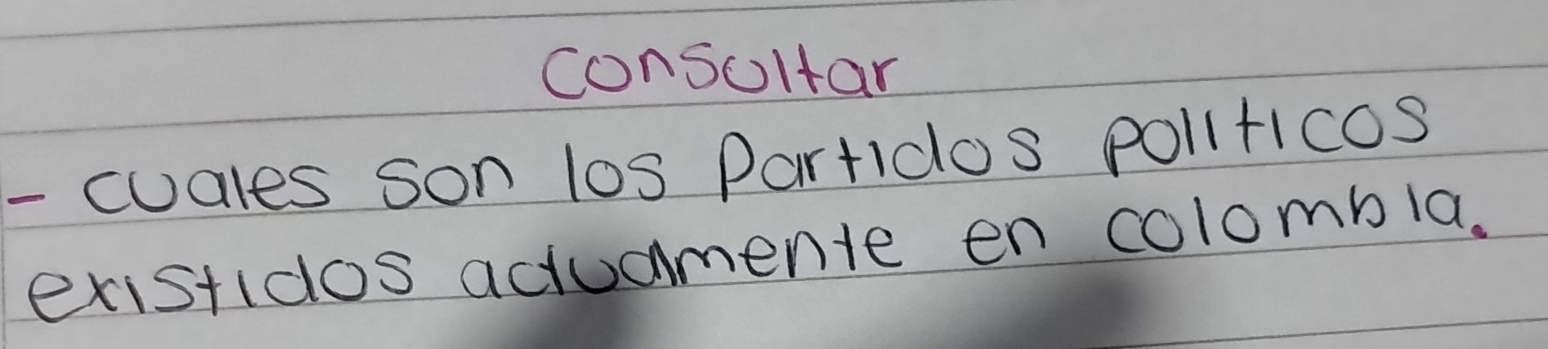 consultar
- cuales son los Partidos políticos
existidos actualmente en colombia.